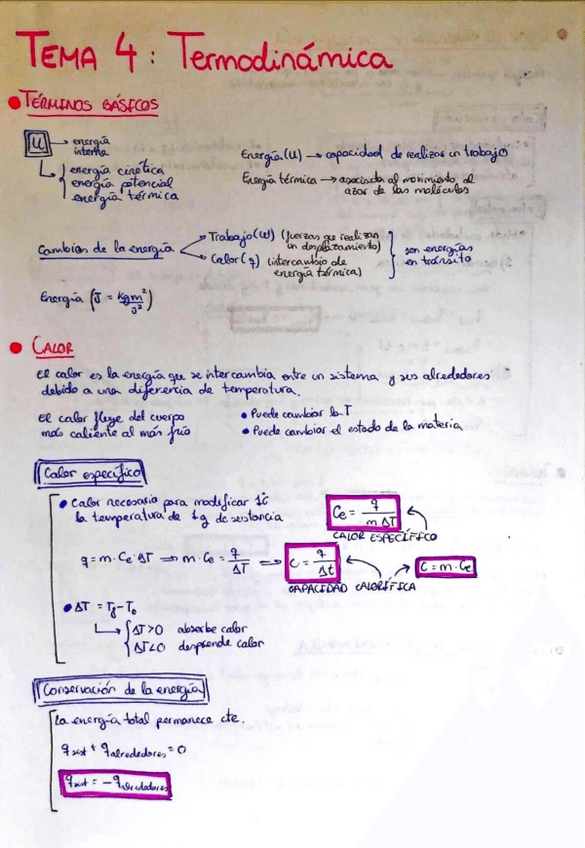 TEMA 4: Termodinámica
• TÉRMINOS BÁSICOS
U → energía interna
energía cinética
energía potencial
energía térmica
Energía (U) → capacidad de realizar un trabajo
Energía térmica → asociada al movimiento al
azar de las moléculas
Cambios de la energía
Trabajo (W) (fuerzas que realizan
un desplazamiento)
Calor (q) (intercambio de
energía térmica)
son energías
en tránsito
Energía (J = kg m²/s²)
• CALOR
El calor es la energía que se intercambia entre un sistema y sus alrededores
debido a una diferencia de temperatura.
El calor fluye del cuerpo
más caliente al más frío
• Puede cambiar la T
• Puede cambiar el estado de la materia
Calor específico
• Calor necesario para modificar 1ºC
la temperatura de 1g de sustancia
Ce = q / m ΔT
CALOR ESPECÍFICO
q = m · Ce · ΔT ⟹ m · Ce = q / ΔT ⟹ C = q / Δt
C = m · Ce
CAPACIDAD CALORÍFICA
• ΔT = Tf - To
ΔT > 0 absorbe calor
ΔT < 0 desprende calor
Conservación de la energía
La energía total permanece cte.
q sist + q alrededores = 0
q sist = - q alrededores